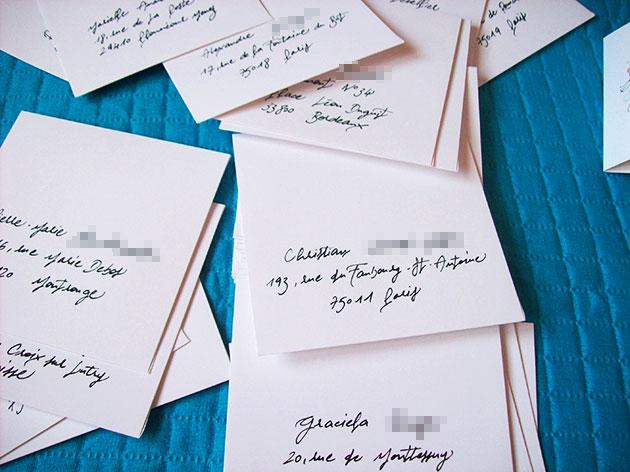 Marielle
18, rue de La Poste
Alexandre
17, rue de la Fontaine du But
75018 Paris
N° 34
Place Léon Duguit
33800 Bordeaux
75019 Paris
elle-Marie
rue Marie Debos
20 Montrouge
Croix sur Lutry
isse
Christian
193, rue du Faubourg-St-Antoine
75011 Paris
Graciela
20, rue de Monttessuy